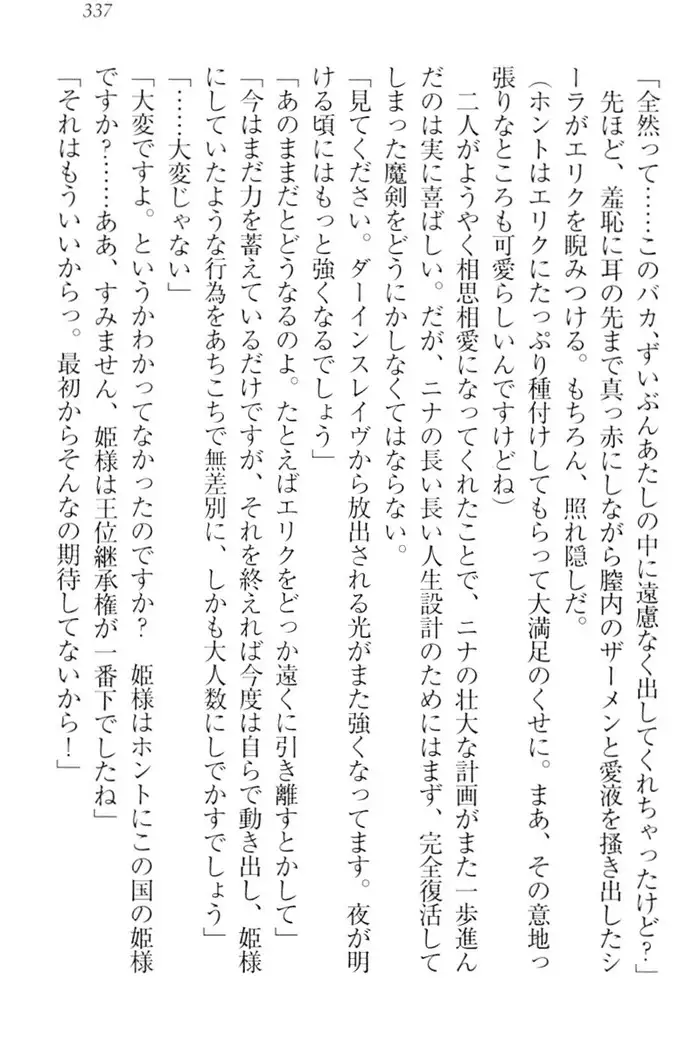 337
「全然って……このバカ、ずいぶんあたしの中に遠慮なく出してくれちゃったけど？」
　先ほど、羞恥に耳の先まで真っ赤にしながら膣内のザーメンと愛液を掻き出したシ
ーラがエリクを睨みつける。もちろん、照れ隠しだ。
（ホントはエリクにたっぷり種付けしてもらって大満足のくせに。まあ、その意地っ
張りなところも可愛らしいんですけどね）
　二人がようやく相思相愛になってくれたことで、ニナの壮大な計画がまた一歩進ん
だのは実に喜ばしい。だが、ニナの長い長い人生設計のためにはまず、完全復活して
しまった魔剣をどうにかしなくてはならない。
「見てください。ダーインスレイヴから放出される光がまた強くなってます。夜が明
ける頃にはもっと強くなるでしょう」
「あのままだとどうなるのよ。たとえばエリクをどっか遠くに引き離すとかして」
「今はまだ力を蓄えているだけですが、それを終えれば今度は自らで動き出し、姫様
にしていたような行為をあちこちで無差別に、しかも大人数にしでかすでしょう」
「……大変じゃない」
「大変ですよ。というかわかってなかったのですか？　姫様はホントにこの国の姫様
ですか？……ああ、すみません、姫様は王位継承権が一番下でしたね」
「それはもういいからっ。最初からそんなの期待してないから！」